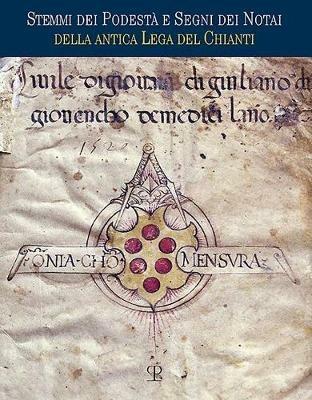 STEMMI DEI PODESTÀ E SEGNI DEI NOTAI
DELLA ANTICA LEGA DEL CHIANTI
Civile di giovan di giuliano di
giovencho de medici lano.
1522
FONIA CHŌ MENSVRA